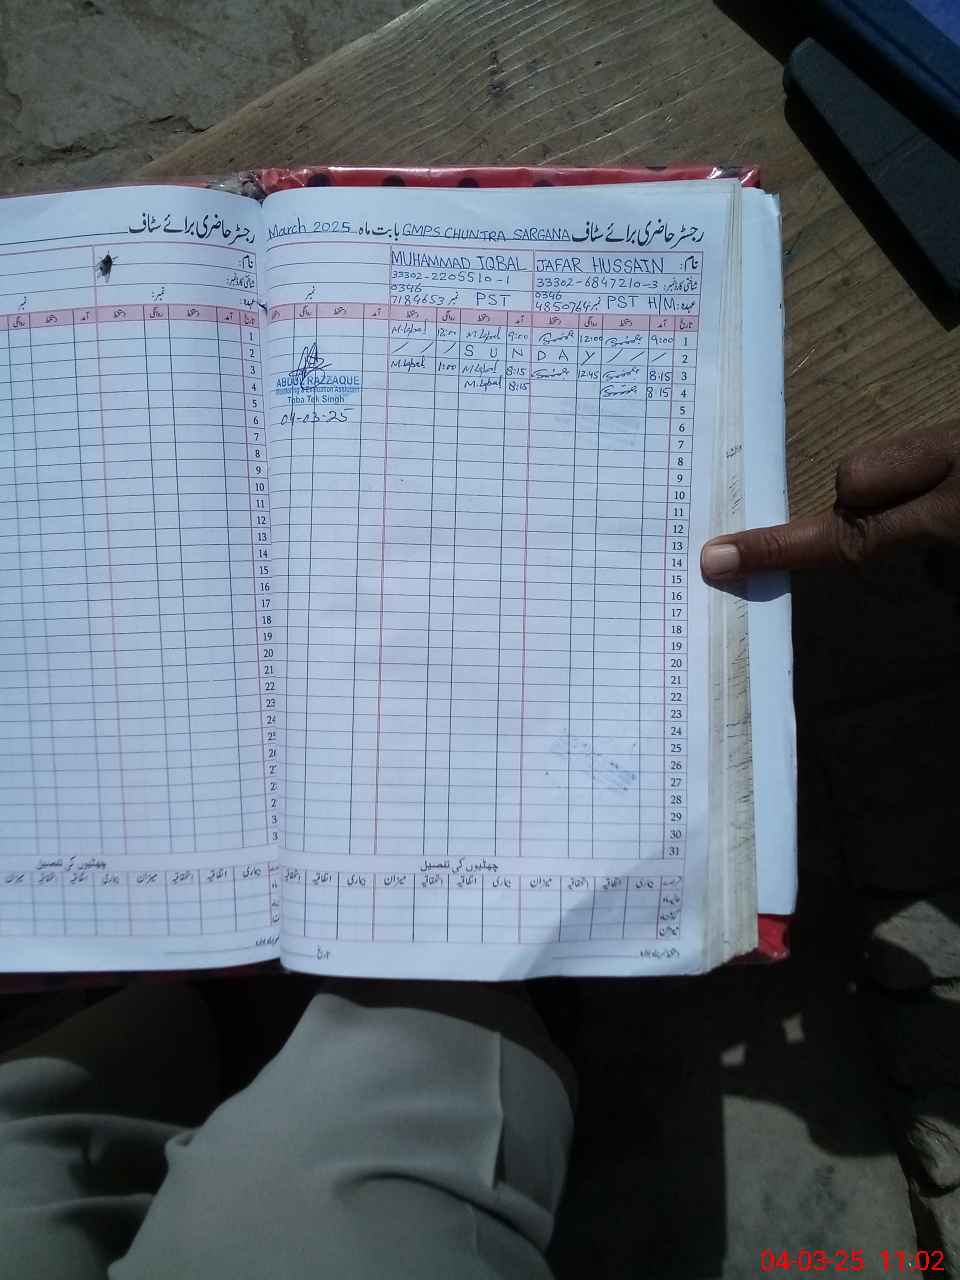 رجسٹر حاضری برائے سٹاف
رجسٹر حاضری برائے سٹاف GMPS CHUNTRA SARGANA بابت ماہ March 2025
نام: JAFAR HUSSAIN MUHAMMAD IQBAL
شناختی کارڈ نمبر: 33302-6847210-3 33302-2205510-1
عہدہ: PST H/M نمبر 0346 4850764 PST نمبر 0346 7184653 نمبر
تاریخ آمد دستخط روانگی دستخط آمد دستخط روانگی دستخط آمد دستخط روانگی دستخط
1 9:00 12:00 9:00 M.Iqbal 12:00 M.Iqbal
2 / / / SUNDAY / / /
3 8:15 12:45 8:15 M.Iqbal 1:00 M.Iqbal
4 8:15 8:15 M.Iqbal
ABDUL RAZZAQUE
Monitoring & Evaluation Assistant
Toba Tek Singh
04-03-25
5
6
7
8
9
10
11
12
13
14
15
16
17
18
19
20
21
22
23
24
25
26
27
28
29
30
31
چھٹیوں کی تفصیل
چھٹیوں کی تفصیل
میزان
تاریخ
04-03-25 11:02